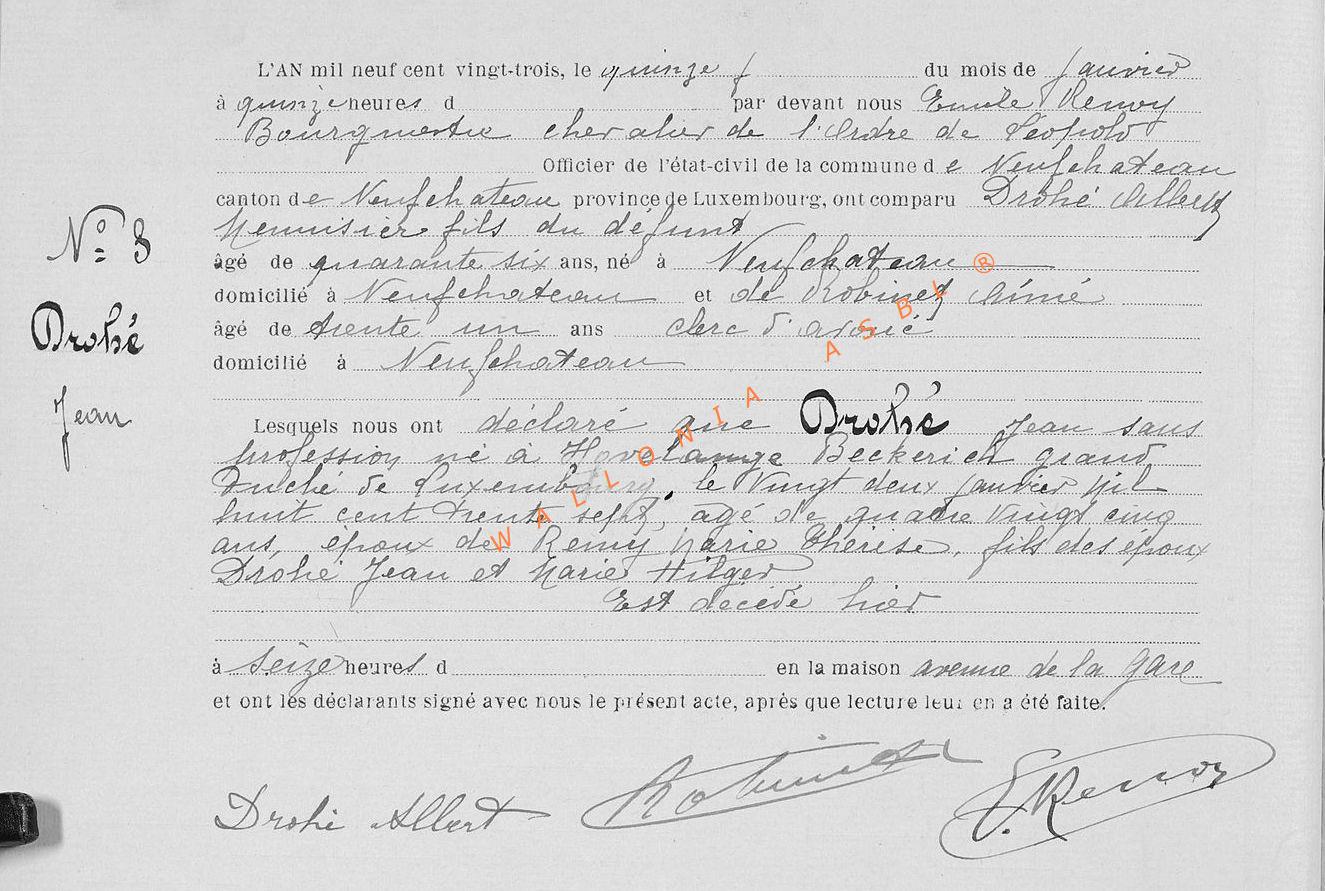 L'AN mil neuf cent vingt-trois, le quinze du mois de Janvier
à quinze heures d par devant nous Emile
Bourgmestre chevalier de l'Ordre de Léopold
Officier de l'état-civil de la commune de Neufchateau
canton de Neufchateau province de Luxembourg, ont comparu Drohé Albert
Menuisier fils du défunt
N° 3
âgé de quarante six ans, né à Neufchateau
domicilié à Neufchateau et de Robinet Aimé
Drohé
âgé de trente un ans clerc d'avoué
domicilié à Neufchateau
Jean
Lesquels nous ont déclaré que Drohé Jean sans
profession né à Hovelange Beckerich grand
Duché de Luxembourg, le Vingt deux Janvier Mil
huit cent trente sept, agé de quatre Vingt cinq
ans, époux de Remy Marie Thérèse, fils des époux
Drohé Jean et Marie Hilger
Est décédé hier
à Seize heures d en la maison avenue de la Gare
et ont les déclarants signé avec nous le présent acte, après que lecture leur en a été faite.
Drohé Albert Robinet
WALLONIA ASBL ®